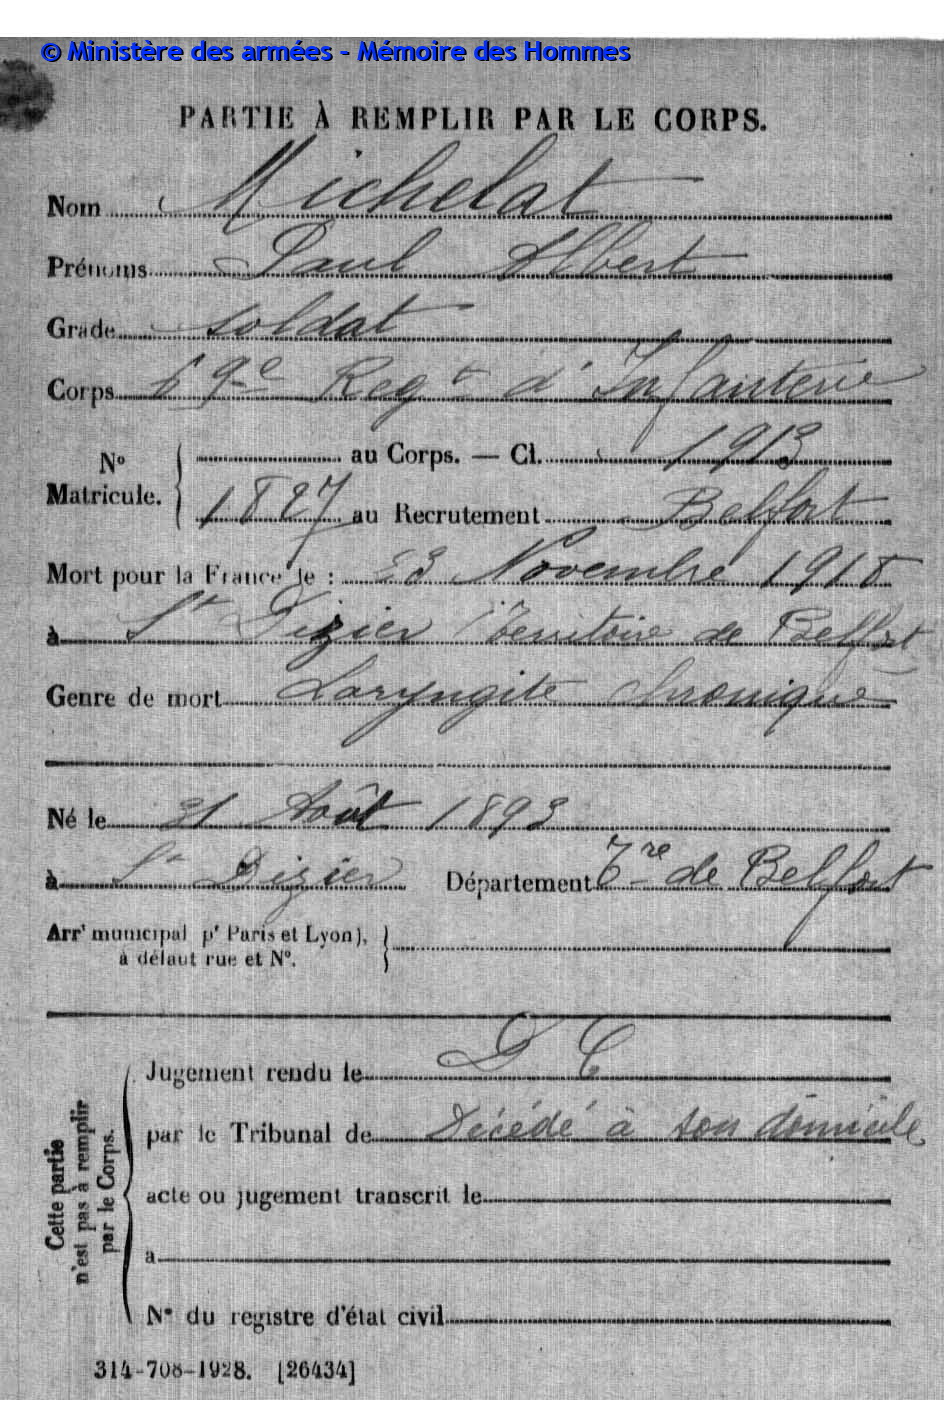 © Ministère des armées - Mémoire des Hommes
PARTIE À REMPLIR PAR LE CORPS.
Nom Michelat
Prénoms Paul Albert
Grade soldat
Corps 69e Regt d'Infanterie
No au Corps. — Cl. 1913
Matricule. 1827 au Recrutement Belfort
Mort pour la France le : 23 Novembre 1918
à St Dizier Territoire de Belfort
Genre de mort Laryngite chronique
Né le 31 Août 1893
à St Dizier Département Tre de Belfort
Arrt municipal pr Paris et Lyon),
à défaut rue et No.
Cette partie
n'est pas à remplir
par le Corps.
Jugement rendu le D C
par le Tribunal de Décédé à son domicile
acte ou jugement transcrit le
a
No du registre d'état civil
314-708-1928. [26434]